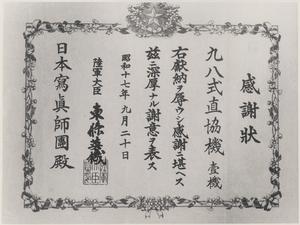 感謝狀
九八式直協機 壹機
右獻納ヲ辱ウシ感謝ニ堪ヘス
茲ニ深厚ナル謝意ヲ表ス
昭和十六年九月二十日
陸軍大臣 東條英機
日本寫眞師團殿